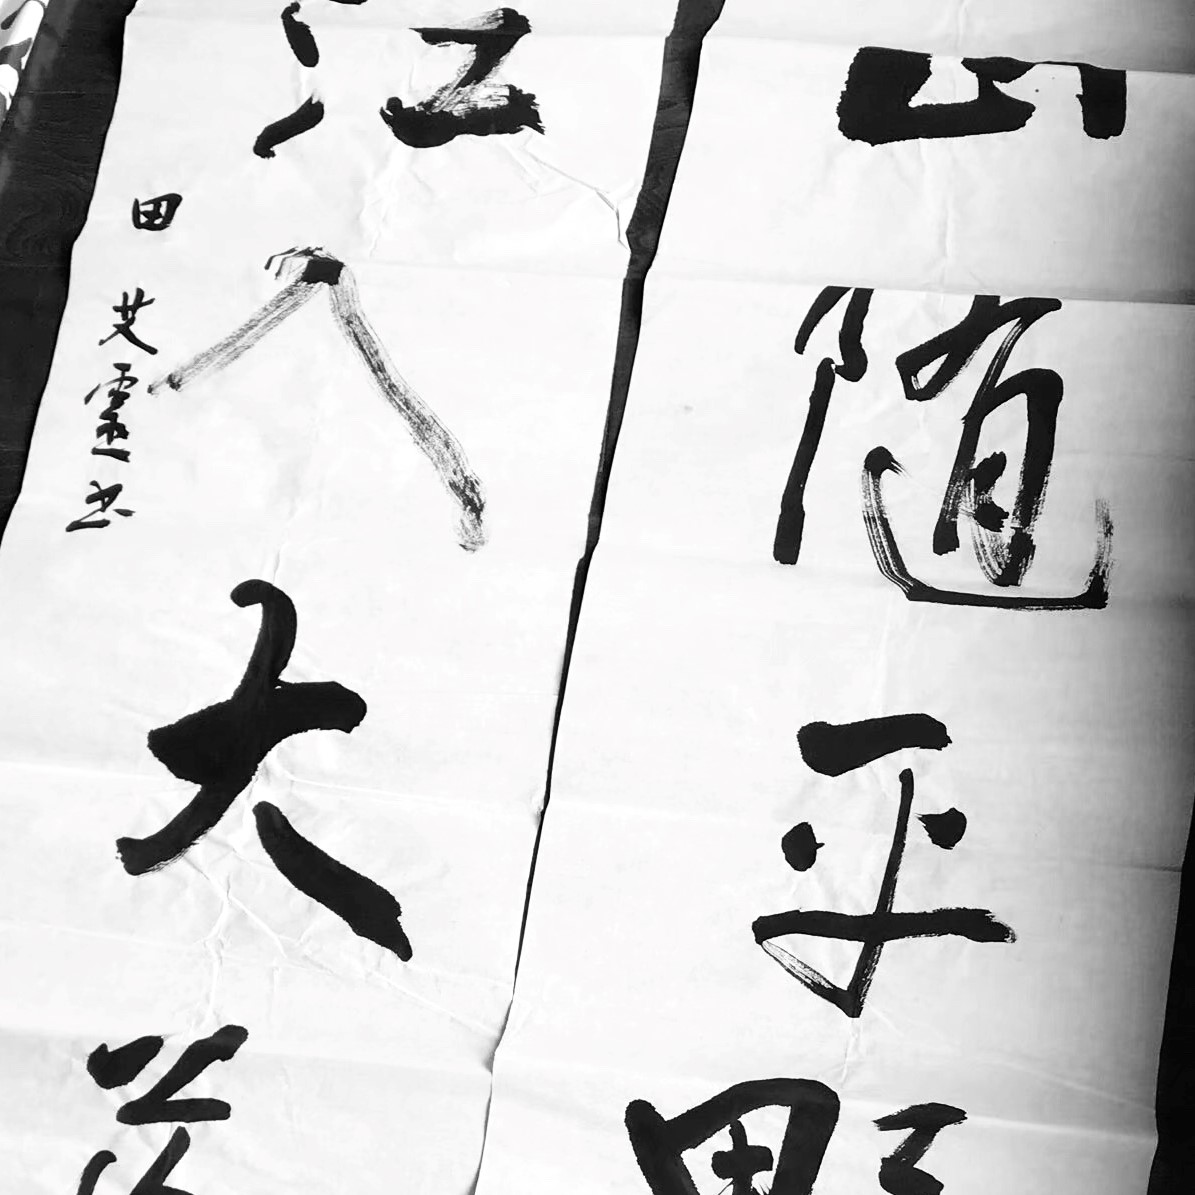 山随平野
江入大荒
田艾靈书